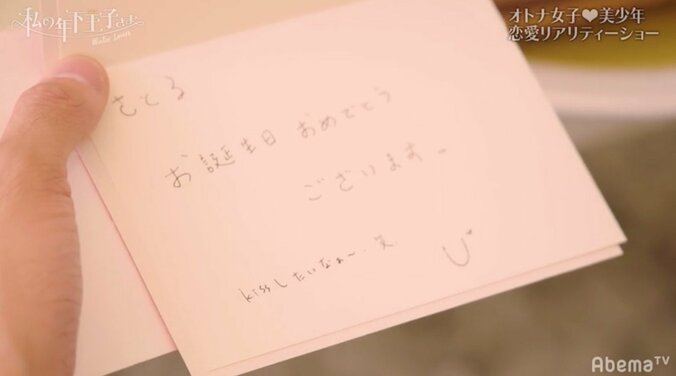 私の年下王子さま
オトナ女子♥美少年
恋愛リアリティーショー
さとる
お誕生日おめでとう
ございます。
kissしたいなぁ〜笑
AbemaTV